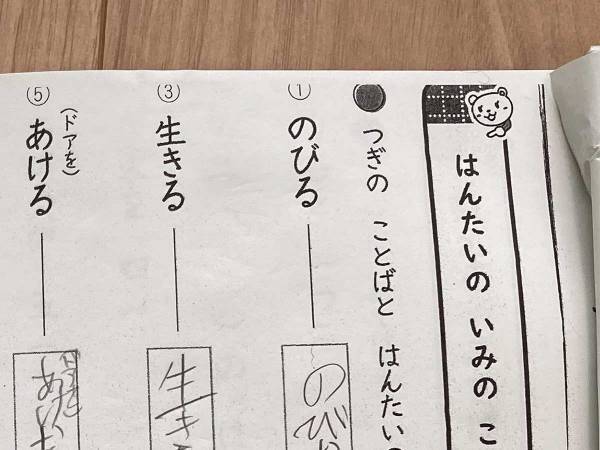 はんたいの いみの こ
つぎの ことばと はんたいの
① のびる
のび
③ 生きる
生き
⑤ (ドアを)あける